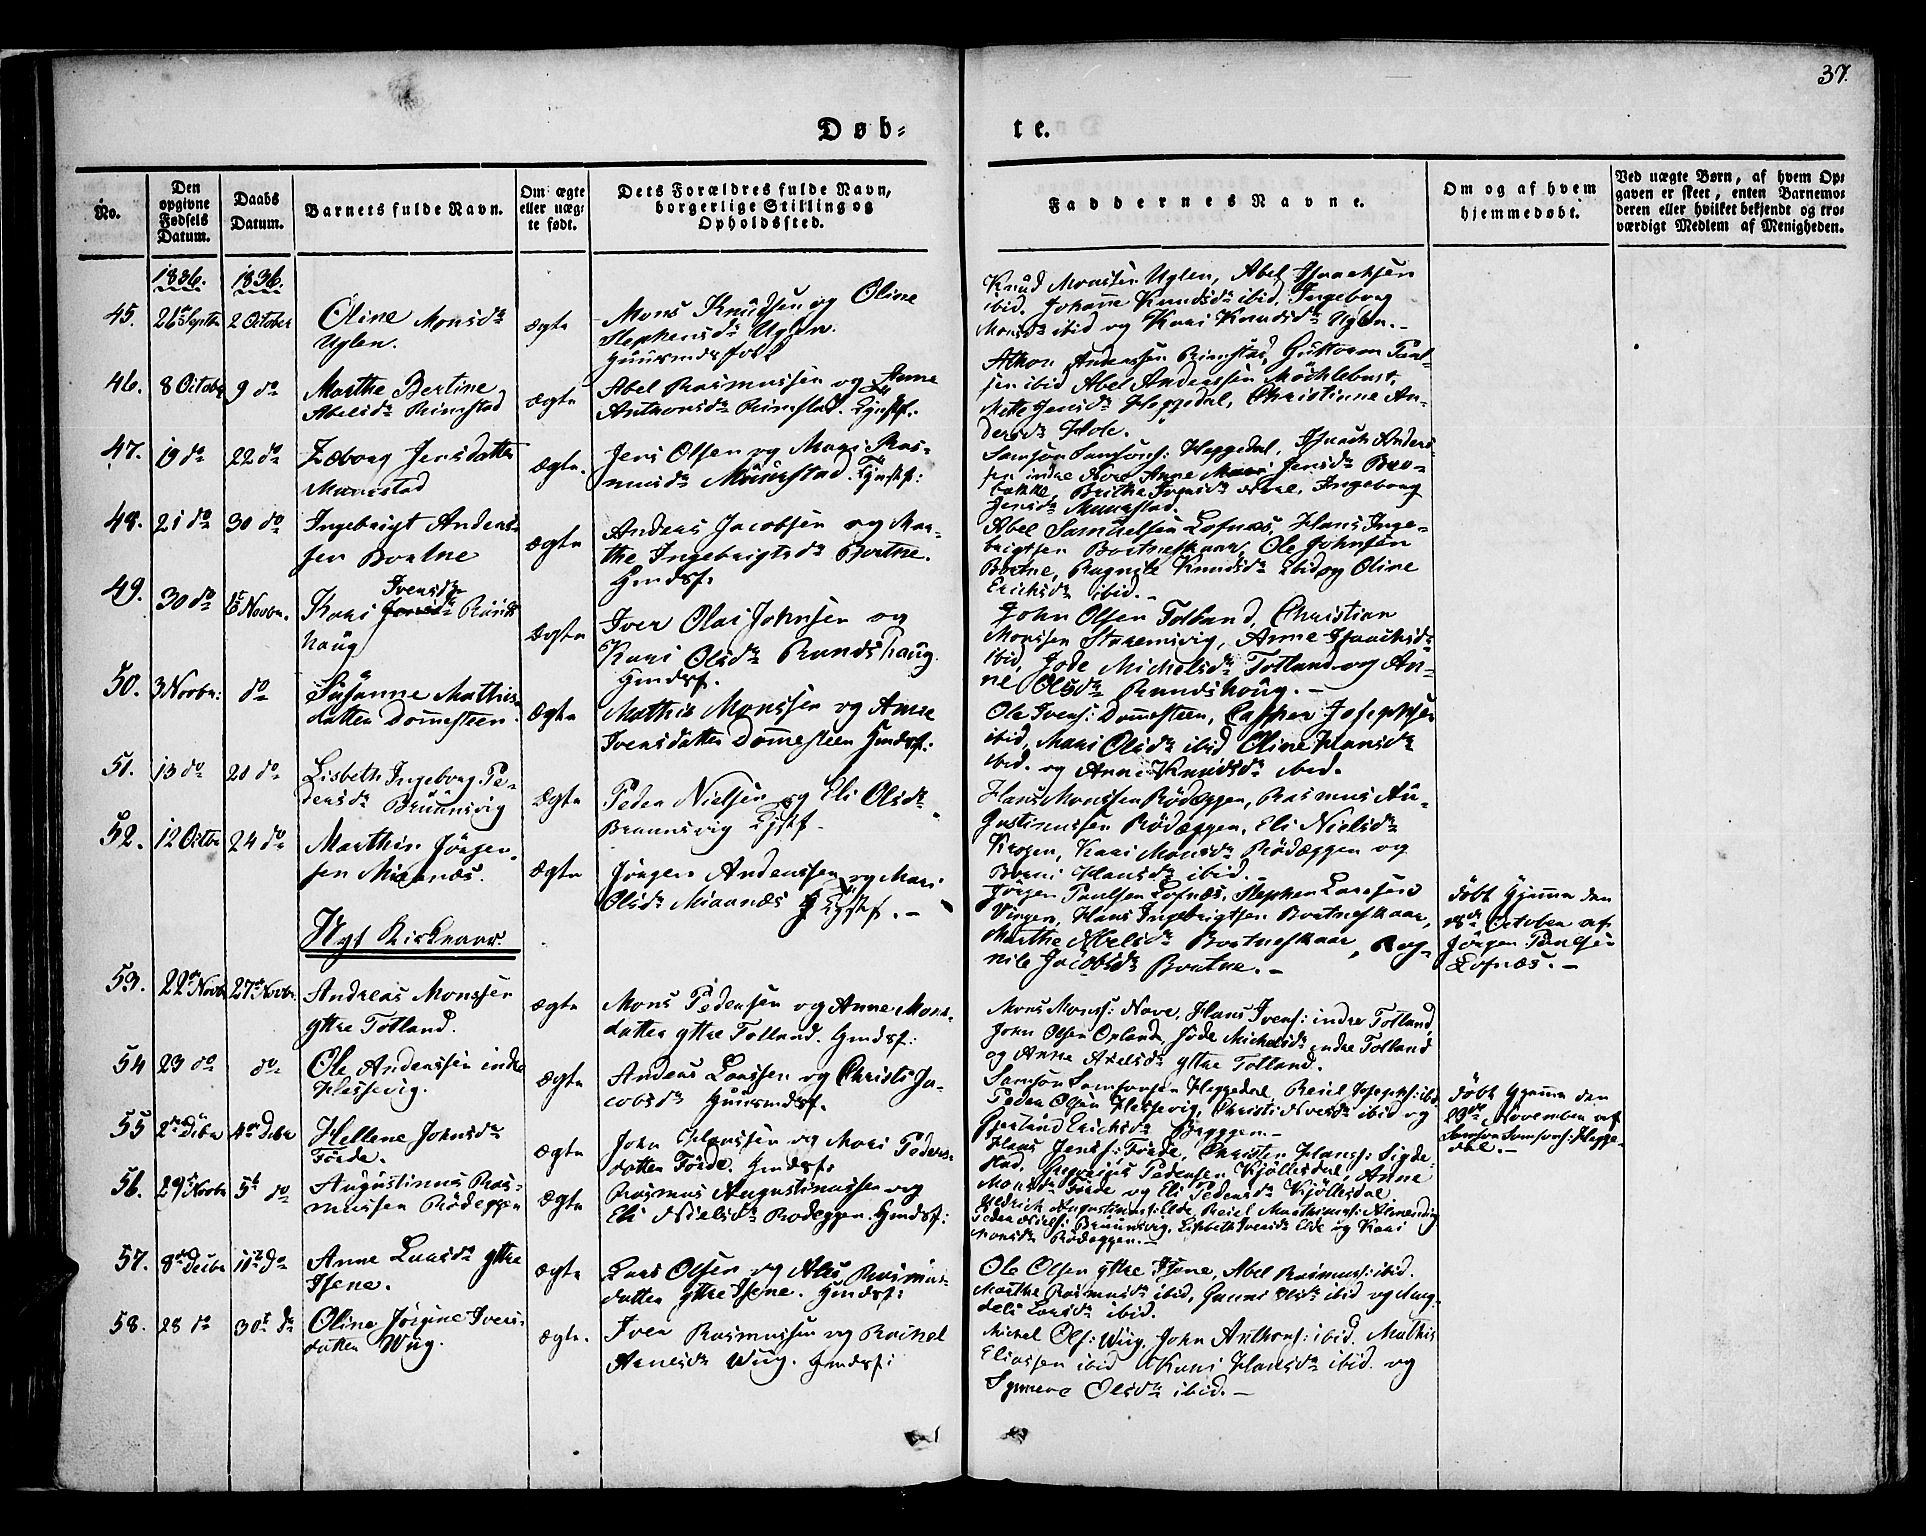 37.
Døb-
te.
No.
Den opgivne Fødsels Datum.
Daabs Datum.
Barnets fulde Navn.
Om ægte eller uægte født.
Dets Forældres fulde Navn, borgerlige Stilling og Opholdssted.
Faddernes Navne.
Om og af hvem hjemmedøbt.
Ved uægte Børn, af hvem Opgaven er skeet, enten Barnemoderen eller hvilket bekjendt og troværdigt Medlem af Menigheden.
1836.
1836.
45.
26 Septbr
2 October
Oline Monsdr
Uglen.
ægte
Mons Knudsen og Oline
Stephensdr Uglen.
Huusmdsfolk
Knud Monssen Uglen, Abel Isaachsen
ibid. Johanne Knudsdr ibid. Ingeborg
Monsdr ibid og Kari Knudsdr Uglen.-
46.
8 Octobr
9 do
Marthe Bertine
Abelsdr Rimstad
ægte
Abel Rasmussen og Anne
Anthonsdr Rimstad.
Anthon Anderssen Rimstad, Guttorm Paul-
sen ibid Abel Anderssen Möchlebust,
Mette Jensdr Heggedal, Christianne An-
dersdr Hole.
47.
19 do
22 do
Jensdatter
Marestad
ægte.
Jens Olsen og Mari Ras-
musdr
Samson Samsons: Heggedal, Isaach Anders-
sen indre Hove Anne Jensdr Bre-
bakke, Brithe
Jensdr
48.
21 do
30 do
Ingebrigt Anders-
sen Bortne
ægte
Anders Jacobsen og Mar-
the Ingebrigtsdr Bortne.
Hmdsf:
Abel Samuelsen Lofnæs, Hans Inge-
brigtsen Bortneskaar, Ole Johnsen
Bortne, Ragnile Knudsdr ibid og Oline
Erichsdr ibid.-
49.
30 do
Novbr.
Iversdr
Kari Rands
haug
ægte
Iver Olai Johnsen og
Kari Olsdr Randshaug
Hmdsf.
John Olsen Totland, Christian
Monssen Staremsvig, Anne Isaachsdr
ibid, Jode Michelsdr Totland og An-
ne Olsdr Randshoug.-
50.
3 Novbr:
do
Susanne Mathias
datter Domesteen
ægte
Mathis Monssen og Anne
Iversdatter Domesteen Hmdsf:
Ole Ivers: Domesteen, Casper Josephsen
ibid, Mari Olsdr ibid Oline Hansdr
ibid. og Anne Knudsdr ibid.
51.
13 do
20 do
Lisbeth Ingeborg Pe-
dersdr Bruunsvig
ægte
Peder Nielsen og Eli Olsdr
Bruunsvig
Hans Monssen Rödeggen, Rasmus Au-
gustinussen Rödeggen, Eli Nielsdr
Krogen, Kari Monsdr Rödæggen og
Hansdr ibid.
52.
12 Octbr
24 do
Marthin Jörgen-
sen Miaanæs.
ægte
Jörgen Anderssen og Mari
Olsdr Miaanæs
Jörgen Paulsen Lofnæs, Stephen Larssen
Vingen, Hans Ingebrigtsen Bortneskaar,
Marthe Abelsdr Bortneskaar, Rag-
nile Jacobsdr Bortne.-
döbt hjemme den
18de October af
Jörgen Paulsen
Lofnæs.-
Nyt Kirkeaar.
53.
22de Novbr
27de Novbr.
Andreas Monssen
yttre Totland.
ægte
Mons Pedersen og Anne Mons-
datter yttre Totland. Hmdsf:
Mons Mons: Nave, Hans Ivens: indre Totland,
John Olsen Opland, Jöde Michelsdr indre Totland
og Anne Axelsdr yttre Totland.
54
23 do
do
Ole Anderssen indre
Hessevig.
ægte
Anders Larssen og Christi Ja-
cobsdr Huusmdsf.
Samson Samsonsen Heggedal, Reiel Joseph: ibid
Peder Olsen Hessevig, Christi ibid og
Gjerland Erichsdr
döbt hjemme den
23de November af
Samson Samsons: Hegge-
dal.-
55
2den Dcbr
4de Dcbr
Hellene Johnsdr
Förde.
ægte
John Hanssen og Mari Peders-
datter Förde. Hmdsf:
Hans Jens: Förde, Christen Hanss: Sigde-
stad. Pedersen Kjöllesdal, Anne
Monsdr Förde og Eli Pedersdr Kjöllesdal
56.
29de Novbr
5te do
Augustinus Ras-
mussen Rödeggen
ægte
Rasmus Augustinussen og
Eli Nielsdr Rodeggen. Hmdsf:
Augustinus: Elde, Reiel Almending
Peder Niels: Bruunsvig, Lisbeth Iversdr Elde og Kari
Monsdr Rödeggen.-
57.
8de Dcbr
11te do
Anne Larsdr yttre
Isene.
ægte
Lars Olsen og Rasmus-
datter yttre Isene. Hmdsf:
Ole Olsen yttre Isene, Abel Rasmuss: ibid.
Marthe Rasmusdr ibid, Olsdr ibid og Mag-
deli Larsdr ibid.
58.
28 do
30te do
Oline Jörgine Ivers-
datter Wug.
ægte.
Iver Rasmussen og
Arnesdr Wug. Hmdsf:
Michel Ols: Wug, John Anthons: ibid. Mathis
Eliassen ibid Kari Hansdr ibid. og
Synneve Olsdr ibid.-